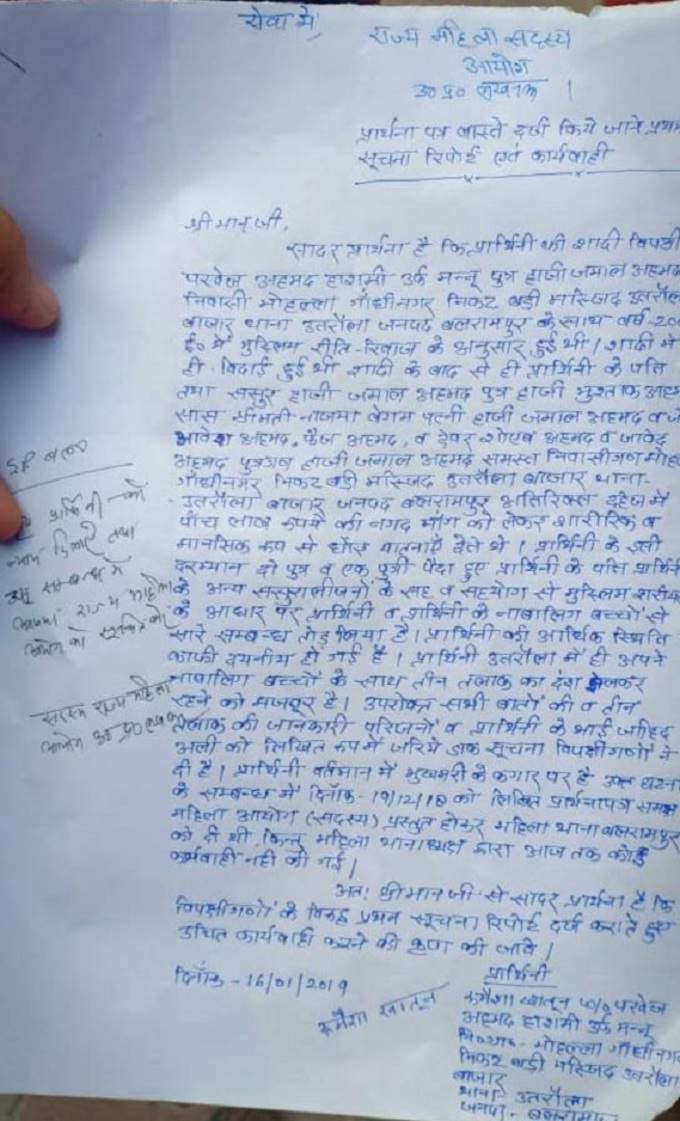 सेवा में,
राज्य महिला सदस्य
आयोग
उ०प्र० लखनऊ ।
प्रार्थना पत्र वास्ते दर्ज किये जाने प्रथम
सूचना रिपोर्ट एवं कार्यवाही
श्रीमान जी,
सादर प्रार्थना है कि प्रार्थिनी की शादी विपक्षी
परवेज अहमद हाशमी उर्फ मन्नू पुत्र हाजी जमाल अहमद
निवासी मोहल्ला गाँधीनगर निकट बड़ी मस्जिद उतरौला
बाजार थाना उतरौला जनपद बलरामपुर के साथ वर्ष-20
ई० में मुस्लिम रीति-रिवाज के अनुसार हुई थी । शादी में
ही विदाई हुई थी शादी के बाद से ही प्रार्थिनी के पति
तथा ससुर हाजी जमाल अहमद पुत्र हाजी मुश्ताक अहम
सास श्रीमती नाजमा बेगम पत्नी हाजी जमाल अहमद व जे
आवेश अहमद, फैज अहमद, व देवर शोएब अहमद व जावेद
अहमद पुत्रगण हाजी जमाल अहमद समस्त निवासीगण मोह
गाँधीनगर निकट बड़ी मस्जिद उतरौला बाजार थाना-
उतरौला बाजार जनपद बलरामपुर अतिरिक्त दहेज में
पाँच लाख रुपये की नगद माँग को लेकर शारीरिक व
मानसिक रूप से घोर यातनाएँ देते थे । प्रार्थिनी के इसी
दरम्यान दो पुत्र व एक पुत्री पैदा हुए प्रार्थिनी के पति प्रार्थिनी
के अन्य ससुरालीजनों के सह व सहयोग से मुस्लिम शरीयत
के आधार पर प्रार्थिनी व प्रार्थिनी के नाबालिग बच्चों से
सारे सम्बन्ध तोड़ लिया है । प्रार्थिनी की आर्थिक स्थिति
काफी दयनीय हो गई है । प्रार्थिनी उतरौला में ही अपने
नाबालिग बच्चों के साथ तीन तलाक का दंश झेलकर
रहने को मजबूर है । उपरोक्त सभी बातों की व तीन
तलाक की जानकारी परिजनों व प्रार्थिनी के भाई जाहिद
अली को लिखित रूप में जरिये डाक सूचना विपक्षीगणों ने
दी है । प्रार्थिनी वर्तमान में भुखमरी के कगार पर है उक्त घटना
के सम्बन्ध में दिनाँक-19/12/18 को लिखित प्रार्थनापत्र समक्ष
महिला आयोग (सदस्य) प्रस्तुत होकर महिला थाना बलरामपुर
को दी थी, किन्तु महिला थानाध्यक्ष द्वारा आज तक कोई
कार्यवाही नहीं की गई ।
अतः श्रीमान जी से सादर प्रार्थना है कि
विपक्षीगणों के विरुद्ध प्रथम सूचना रिपोर्ट दर्ज कराते हुए
उचित कार्यवाही करने की कृपा की जावे ।
दिनाँक - 16/01/2019
प्रार्थिनी
खातून
खातून w/o परवेज
अहमद हाशमी उर्फ मन्नू
मोहल्ला गाँधीनगर
निकट बड़ी मस्जिद उतरौला
बाजार
थाना उतरौला
जनपद - बलरामपुर
SP
प्रार्थिनी को
न्याय दिलाएं तथा
सम्बन्ध में
राज्य महिला
आयोग को सूचित करें
सदस्य राज्य महिला
आयोग उ०प्र०